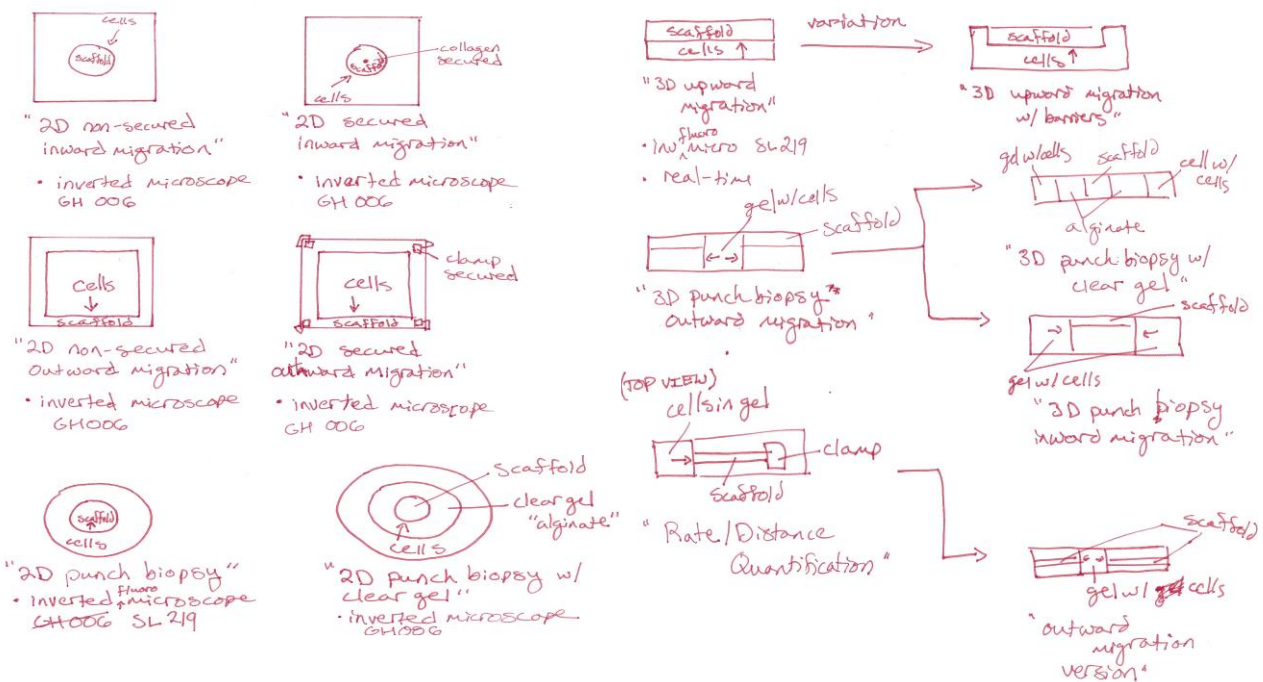 cells
scaffold
"2D non-secured
inward migration"
• inverted microscope
GH 006
collagen
secured
scaffold
cells
"2D secured
inward migration"
• inverted microscope
GH 006
cells
scaffold
"2D non-secured
Outward migration"
• inverted microscope
GH006
clamp
secured
cells
scaffold
"2D secured
outward migration"
• inverted microscope
GH 006
scaffold
cells
"2D punch biopsy"
• inverted fluoro microscope
GH006 SL 219
Scaffold
clear gel
"alginate"
cells
"2D punch biopsy w/
clear gel"
• inverted microscope
GH006
scaffold
cells
"3D upward
migration"
• Inv fluoro micro SL219
• real-time
variation
scaffold
cells
"3D upward migration
w/ barriers"
gel w/cells
scaffold
"3D punch biopsy"*
Outward migration"
gel w/cells
scaffold
cell w/
cells
alginate
"3D punch biopsy w/
clear gel"
scaffold
gel w/cells
"3D punch biopsy
inward migration"
(TOP VIEW)
cells in gel
clamp
scaffold
"Rate/Distance
Quantification"
scaffold
gel w/ cells
"outward
migration
version"